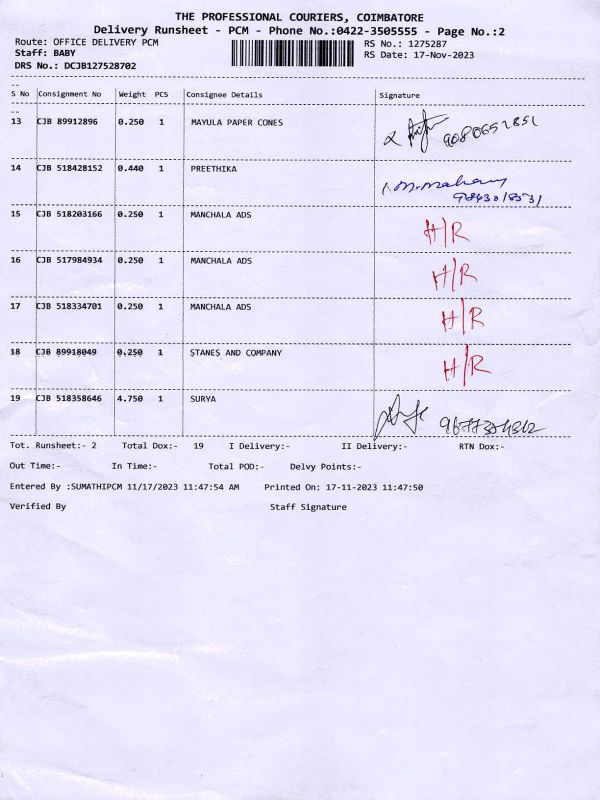 THE PROFESSIONAL COURIERS, COIMBATORE
Delivery Runsheet - PCM - Phone No.:0422-3505555 - Page No.:2
Route: OFFICE DELIVERY PCM RS No.: 1275287
Staff: BABY RS Date: 17-Nov-2023
DRS No.: DCJB127528702
--
S No Consignment No Weight PCS Consignee Details Signature
--
13 CJB 89912896 0.250 1 MAYULA PAPER CONES
14 CJB 518428152 0.440 1 PREETHIKA
15 CJB 518203166 0.250 1 MANCHALA ADS H/R
16 CJB 517984934 0.250 1 MANCHALA ADS H/R
17 CJB 518334701 0.250 1 MANCHALA ADS H/R
18 CJB 89918049 0.250 1 STANES AND COMPANY H/R
19 CJB 518358646 4.750 1 SURYA
Tot. Runsheet:- 2 Total Dox:- 19 I Delivery:- II Delivery:- RTN Dox:-
Out Time:- In Time:- Total POD:- Delvy Points:-
Entered By :SUMATHIPCM 11/17/2023 11:47:54 AM Printed On: 17-11-2023 11:47:50
Verified By Staff Signature